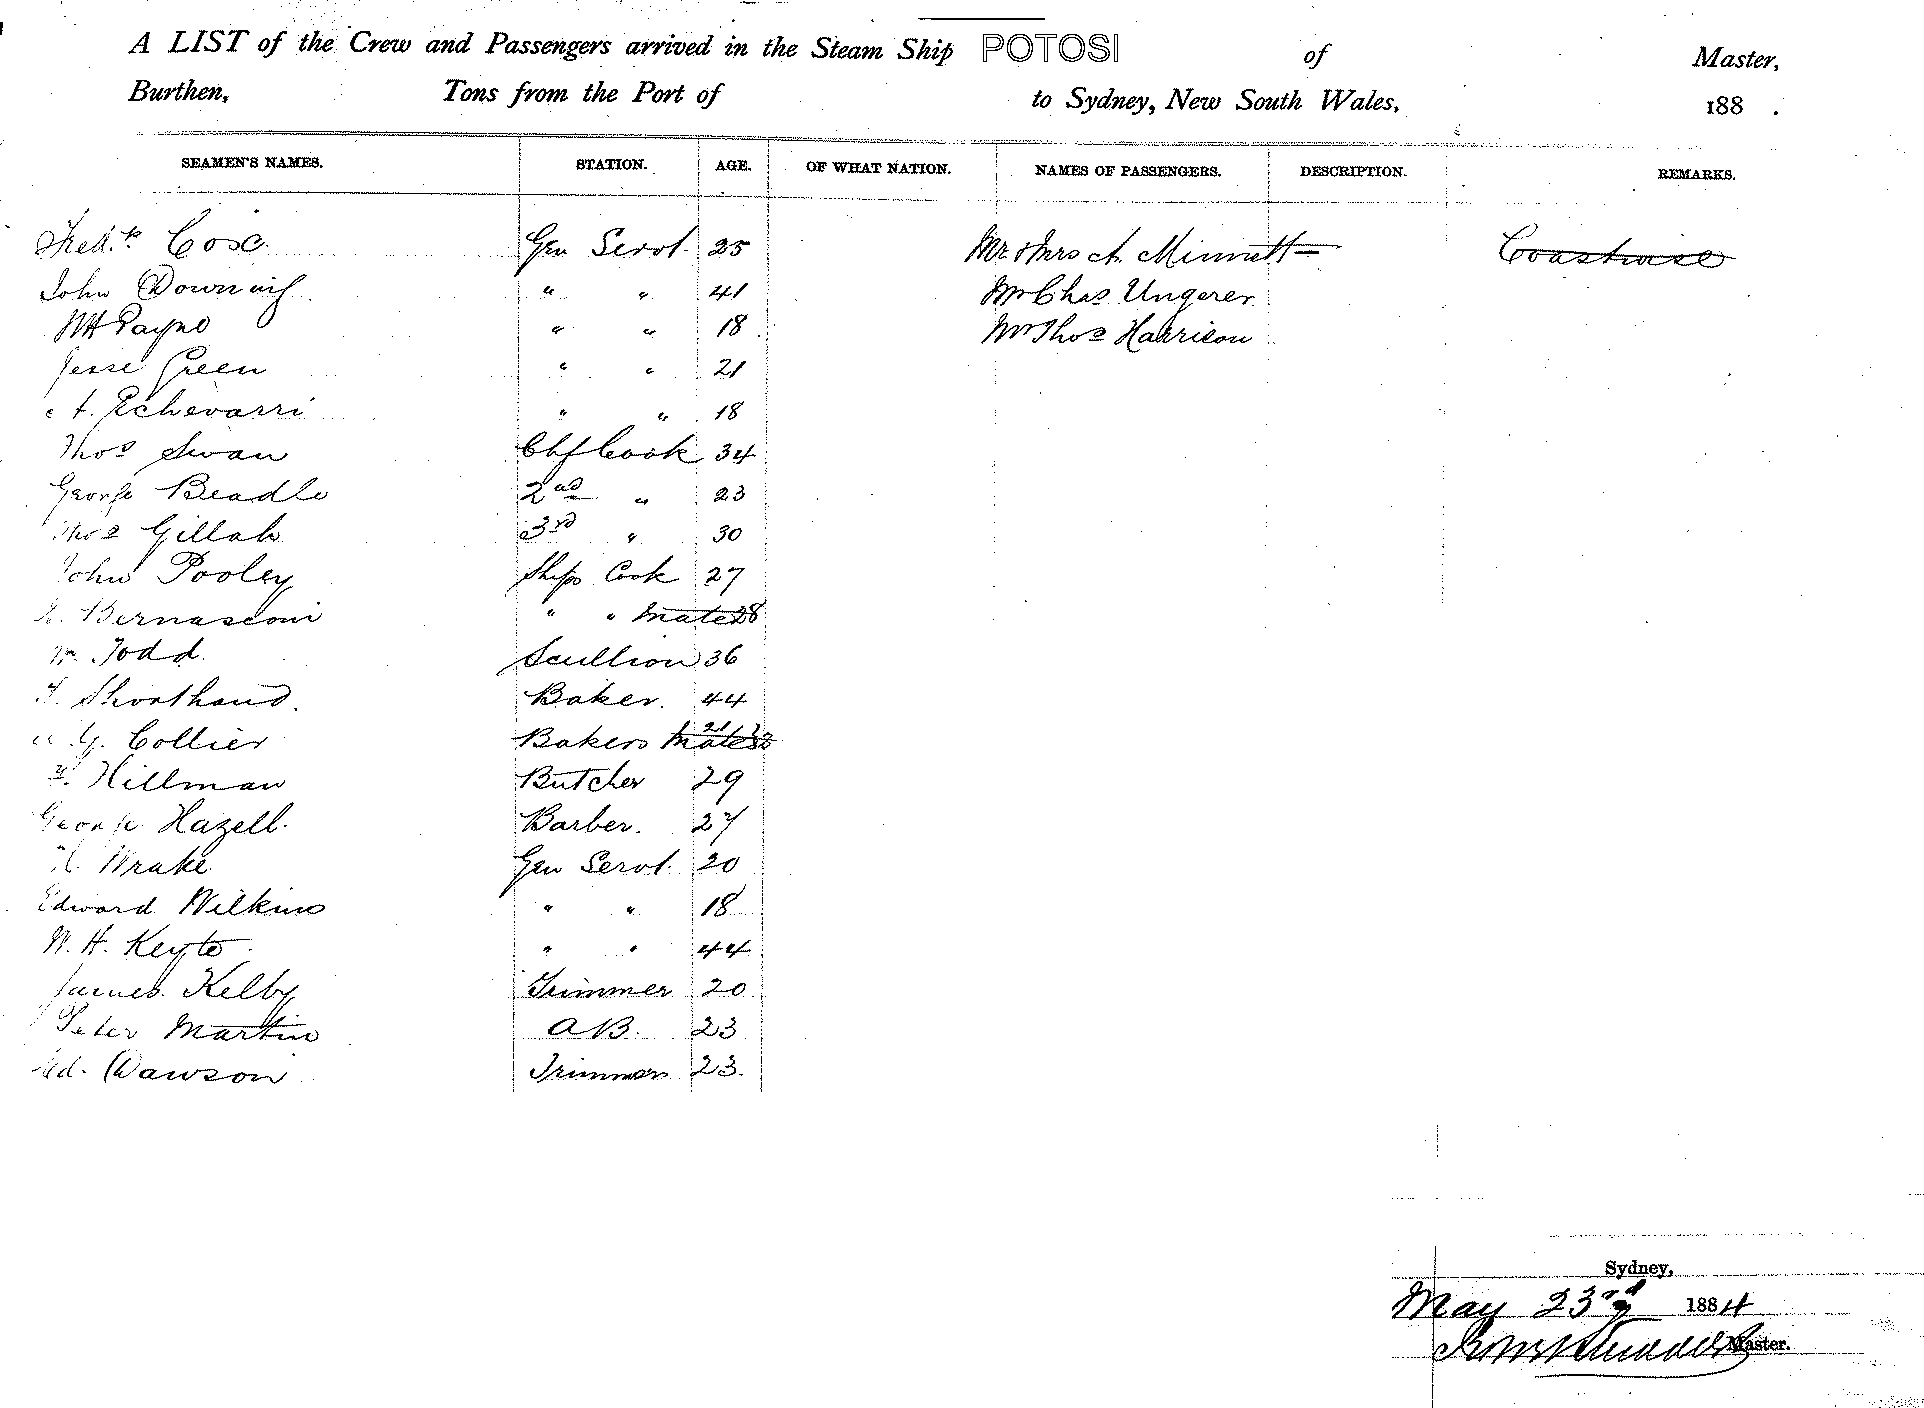 A LIST of the Crew and Passengers arrived in the Steam Ship POTOSI of Master,
Burthen, Tons from the Port of to Sydney, New South Wales, 188 .
SEAMEN'S NAMES. STATION. AGE. OF WHAT NATION. NAMES OF PASSENGERS. DESCRIPTION. REMARKS.
Fredk Cox Gen Servt. 25 Mr & Mrs A. Minnett Coastwise
John Downing " " 41 Mr Chas Ungerer
WH Payne " " 18 Mr Thos Harrison
Jesse Green " " 21
A. Echevarri " " 18
Thos Swan Chf Cook 34
George Beadle 2nd " 23
Thos Gillah 3rd " 30
John Pooley Ships Cook 27
Bernasconi " " Mate 28
Wm Todd. Scullion 36
Shorthand. Baker. 44
G. Collier Bakers Mate 21
Hillman Butcher 29
George Hazell. Barber. 27
H. Wrake Gen Servt. 20
Edward Wilkins " " 18
W. H. Keyte " " 44
James Kelby Trimmer 20
Peter Martin AB. 23
Ed. Dawson Trimmer 23.
Sydney,
May 23rd 1884
Master.